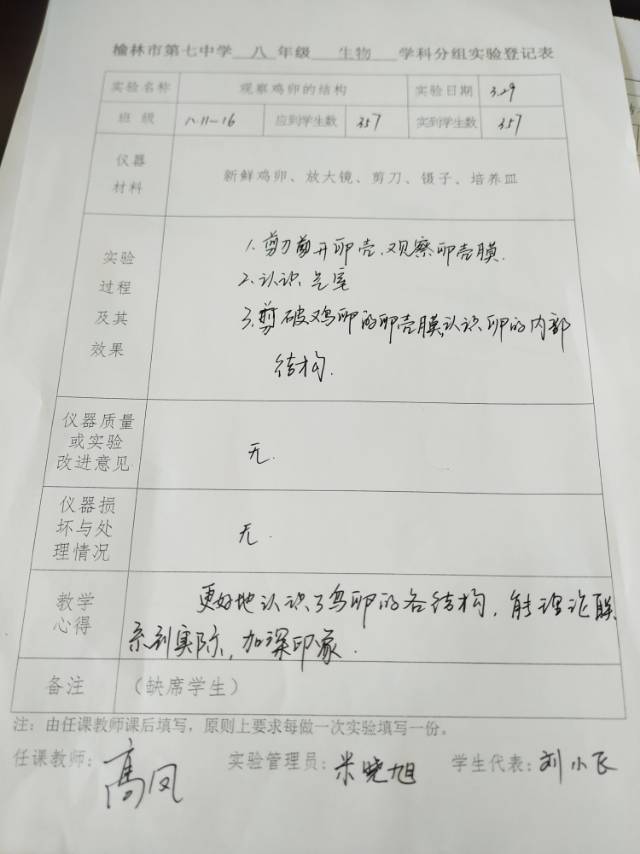 榆林市第七中学 八 年级 生物 学科分组实验登记表
实验名称 观察鸡卵的结构 实验日期 3.29
班级 八.11-16 应到学生数 357 实到学生数 357
仪器
材料
新鲜鸡卵、放大镜、剪刀、镊子、培养皿
实验
过程
及其
效果
1.剪刀剪开卵壳,观察卵壳膜.
2.认识气室
3.剪破鸡卵的卵壳膜,认识卵的内部
结构.
仪器质量
或实验
改进意见
无.
仪器损
坏与处
理情况
无.
教学
心得
更好地认识了鸟卵的各结构,能理论联
系到实际,加深印象.
备注 (缺席学生)
注:由任课教师课后填写,原则上要求每做一次实验填写一份。
任课教师:高凤 实验管理员:米晓旭 学生代表:刘小飞